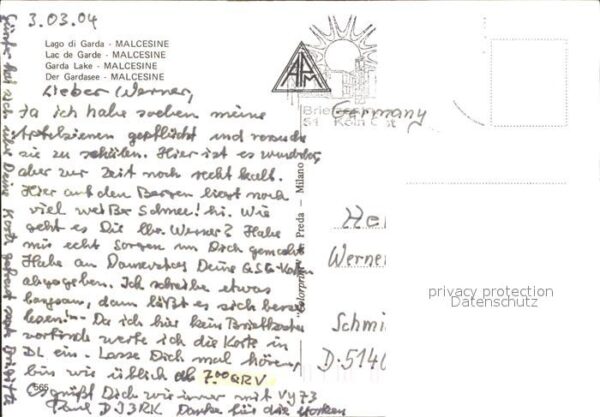 3.03.04
Lago di Garda - MALCESINE
Lac de Garde - MALCESINE
Garda Lake - MALCESINE
Der Gardasee - MALCESINE
Lieber Werner,
Ja ich habe soeben meine
gepflückt und
sie zu schälen. Hier ist es wunderbar
aber zur Zeit noch recht kalt.
Hier auf den Bergen liegt noch
viel weißer Schnee! hi. Wie
geht es Dir lbr. Werner? Habe
mir echt Sorgen um Dich gemacht
Habe am Donnerstag Deine QSL-Karten
abgegeben. Ich schreibe etwas
langsam, dann läßt es sich besser
lesen!- Da ich hier kein Briefkasten
vorfinde werfe ich die Karte in
DL ein. Lasse Dich mal hören,
bin wie üblich ab 7.00 QRV
Es grüßt Dich wie immer mit VY73
Paul DJ3RK Danke für die
565
sich über Deine Karte gefreut sagt Brigitte
"Colorprint" Preda - Milano
APM
Brief
Köln
Germany
Her
Werner
Schmi
D-5140
privacy protection
Datenschutz